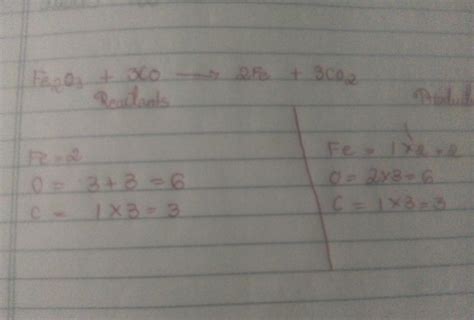 Fe₂O₃ + 3CO → 2Fe + 3CO₂
Reactants
Fe = 2
O = 3+3 = 6
C = 1×3 = 3
Fe = 1×2 = 2
O = 2×3 = 6
C = 1×3 = 3